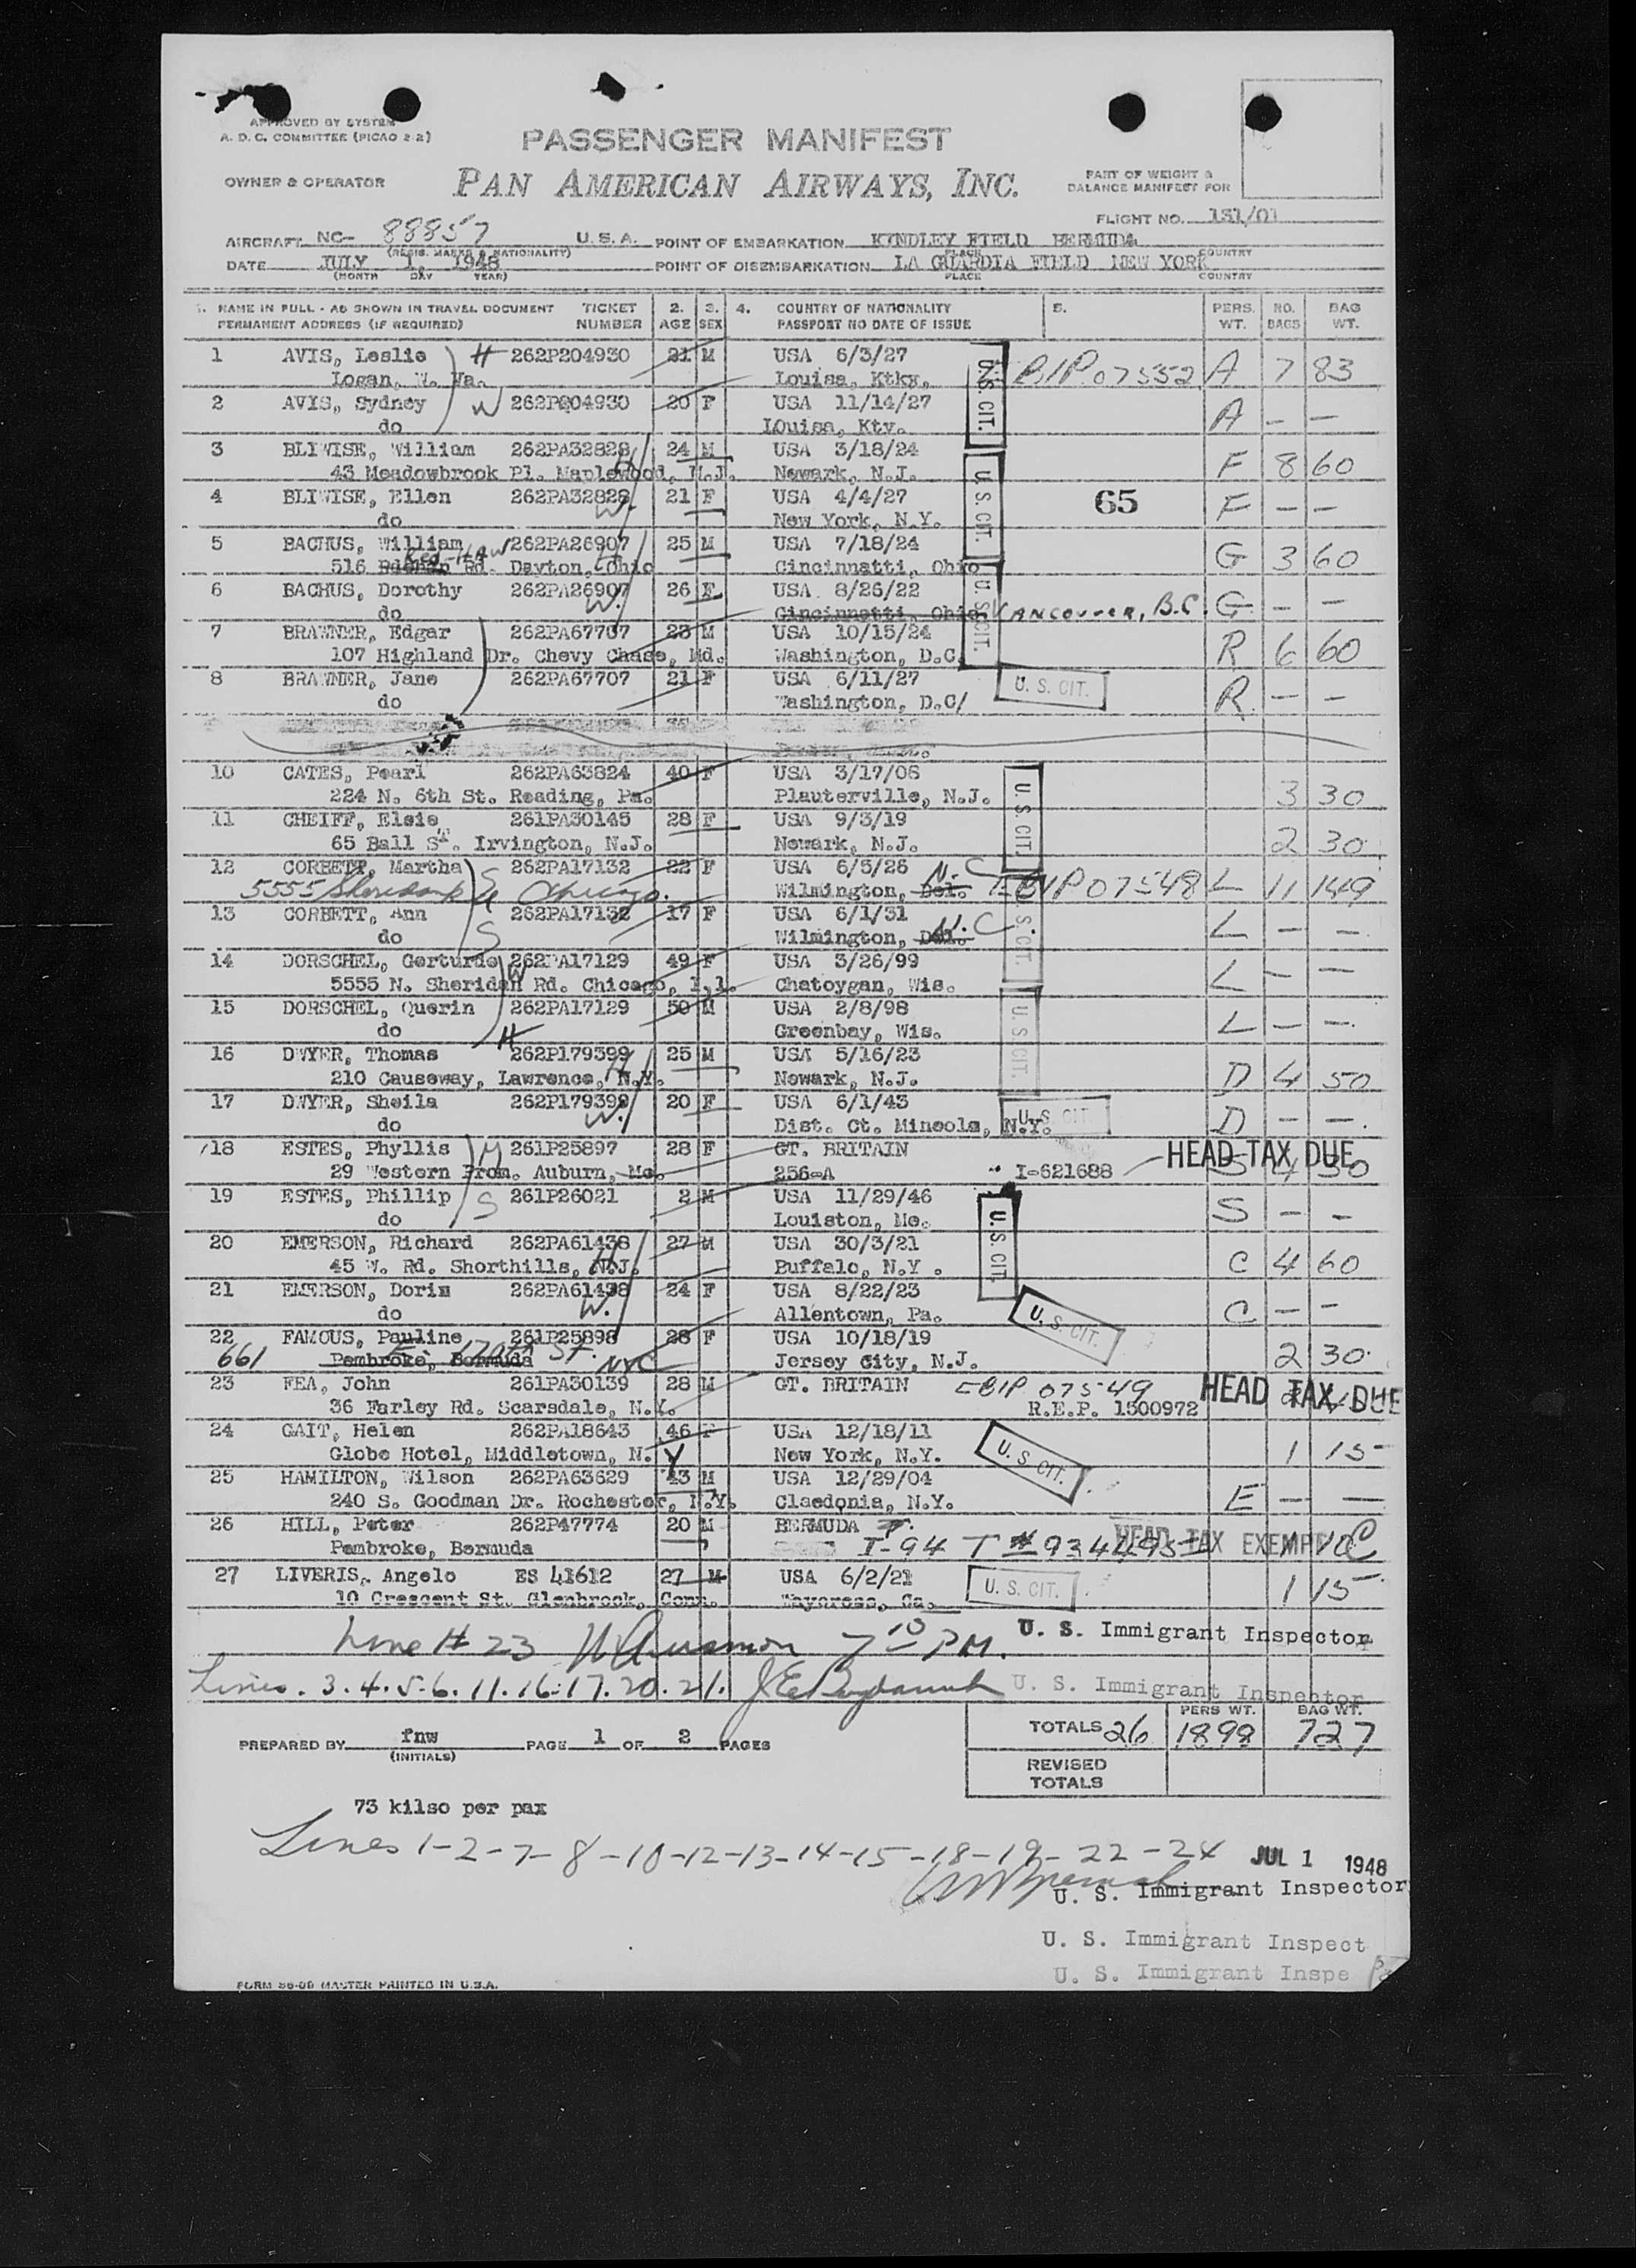 APPROVED BY SYSTEM
A. D. C. COMMITTEE (PICAO 2.2)
PASSENGER MANIFEST
OWNER & OPERATOR PAN AMERICAN AIRWAYS, INC.
PART OF WEIGHT &
BALANCE MANIFEST FOR
FLIGHT NO. 131/01
AIRCRAFT NC- 88857 U.S.A. POINT OF EMBARKATION KINDLEY FIELD BERMUDA
(REGIS. MARKS & NATIONALITY) PLACE COUNTRY
DATE JULY 1, 1948 POINT OF DISEMBARKATION LA GUARDIA FIELD NEW YORK
(MONTH DAY YEAR) PLACE COUNTRY
1. NAME IN FULL - AS SHOWN IN TRAVEL DOCUMENT TICKET 2. 3. 4. COUNTRY OF NATIONALITY 5. PERS. NO. BAG
PERMANENT ADDRESS (IF REQUIRED) NUMBER AGE SEX PASSPORT NO DATE OF ISSUE WT. BAGS WT.
1 AVIS, Leslie H 262P204930 21 M USA 6/3/27 U.S. CIT. BIP 07552 A 7 83
Logan, W. Va. Louisa, Ktky.
2 AVIS, Sydney W 262P204930 20 F USA 11/14/27 A - -
do LOuisa, Kty.
3 BLIWISE, William 262PA32828 24 M USA 3/18/24 U. S. CIT. F 8 60
43 Meadowbrook Pl. Maplewood, N.J. Newark, N.J.
4 BLIWISE, Ellen 262PA32828 W. 21 F USA 4/4/27 65 F - -
do New York, N.Y.
5 BACHUS, William 262PA26907 25 M USA 7/18/24 G 3 60
516 Red-HAW Rd. Dayton, Ohio H Cincinnatti, Ohio
6 BACHUS, Dorothy 262PA26907 W. 26 F USA 8/26/22 U. S. CIT. G - -
do Cincinnatti, Ohio VANCOUVER, B.C.
7 BRAWNER, Edgar 262PA67707 23 M USA 10/15/24 R 6 60
107 Highland Dr. Chevy Chase, Md. Washington, D.C.
8 BRAWNER, Jane 262PA67707 21 F USA 6/11/27 U. S. CIT. R - -
do Washington, D.C/
10 CATES, Pearl 262PA63824 40 F USA 3/17/08 U. S. CIT. 3 30
224 N. 6th St. Reading, Pa. Plauterville, N.J.
11 CHEIFF, Elsie 261PA30145 28 F USA 9/3/19 2 30
65 Ball ST. Irvington, N.J. Newark, N.J.
12 CORBETT, Martha S 262PA17132 22 F USA 6/5/26 N.C L 11 149
5555 Sheridan Chicago. Wilmington, Del. BIP 07548
13 CORBETT, Ann S 262PA17132 17 F USA 6/1/31 N.C S. CIT. L - -
do Wilmington, Del.
14 DORSCHEL, Gerturde W 262PA17129 49 F USA 3/26/99 L - -
5555 N. Sheridan Rd. Chicago, Ill. Chatoygan, Wis.
15 DORSCHEL, Querin 262PA17129 50 M USA 2/8/98 U. S. CIT. L - -
do H Greenbay, Wis.
16 DWYER, Thomas 262P179399 25 M USA 5/16/23 D 4 50
210 Causeway, Lawrence, N.Y. H Newark, N.J.
17 DWYER, Sheila 262P179399 W. 20 F USA 6/1/43 U. S. CIT. D - -
do Dist. Ct. Mineola, N.Y.
18 ESTES, Phyllis M 261P25897 28 F GT. BRITAIN HEAD TAX DUE S 4 30
29 Western Prom. Auburn, Me. 256-A I-621688
19 ESTES, Phillip S 261P26021 2 M USA 11/29/46 U. S. CIT. S - -
do Louiston, Me.
20 EMERSON, Richard 262PA61438 27 M USA 30/3/21 C 4 60
45 W. Rd. Shorthills, N.J. H Buffalo, N.Y .
21 EMERSON, Doris 262PA61438 W. 24 F USA 8/22/23 U. S. CIT. C - -
do Allentown, Pa.
22 FAMOUS, Pauline 261P25898 28 F USA 10/18/19 2 30
661 Pembroke, Bermuda E. ST. NYC Jersey City, N.J.
23 FEA, John 261PA30139 28 M GT. BRITAIN BIP 07549 HEAD TAX DUE
36 Farley Rd. Scarsdale, N.Y. R.E.P. 1500972
24 GAIT, Helen 262PA18643 46 F USA 12/18/11 U. S. CIT. 1 15
Globe Hotel, Middletown, N. Y New York, N.Y.
25 HAMILTON, Wilson 262PA63629 43 M USA 12/29/04 E - -
240 S. Goodman Dr. Rochester, N.Y. Claedonia, N.Y.
26 HILL, Peter 262P47774 20 M BERMUDA HEAD TAX EXEMPT
Pembroke, Bermuda I-94 T #
27 LIVERIS, Angelo ES 41612 27 M USA 6/2/21 U. S. CIT. 1 15
10 Crescent St. Glenbrook, Conn. Waycross, Ga.
Line # 23 7 10 PM. U. S. Immigrant Inspector
Lines. 3.4.5.6.11.16.17.20.21. U. S. Immigrant Inspector
PERS WT. BAG WT.
PREPARED BY fnw PAGE 1 OF 2 PAGES TOTALS 26 1898 727
(INITIALS)
REVISED
TOTALS
73 kilso per pax
Lines 1-2-7-8-10-12-13-14-15-18-19-22-24 JUL 1 1948
U. S. Immigrant Inspector
U. S. Immigrant Inspect
U. S. Immigrant Inspe
FORM 86-0B MASTER PRINTED IN U.S.A.